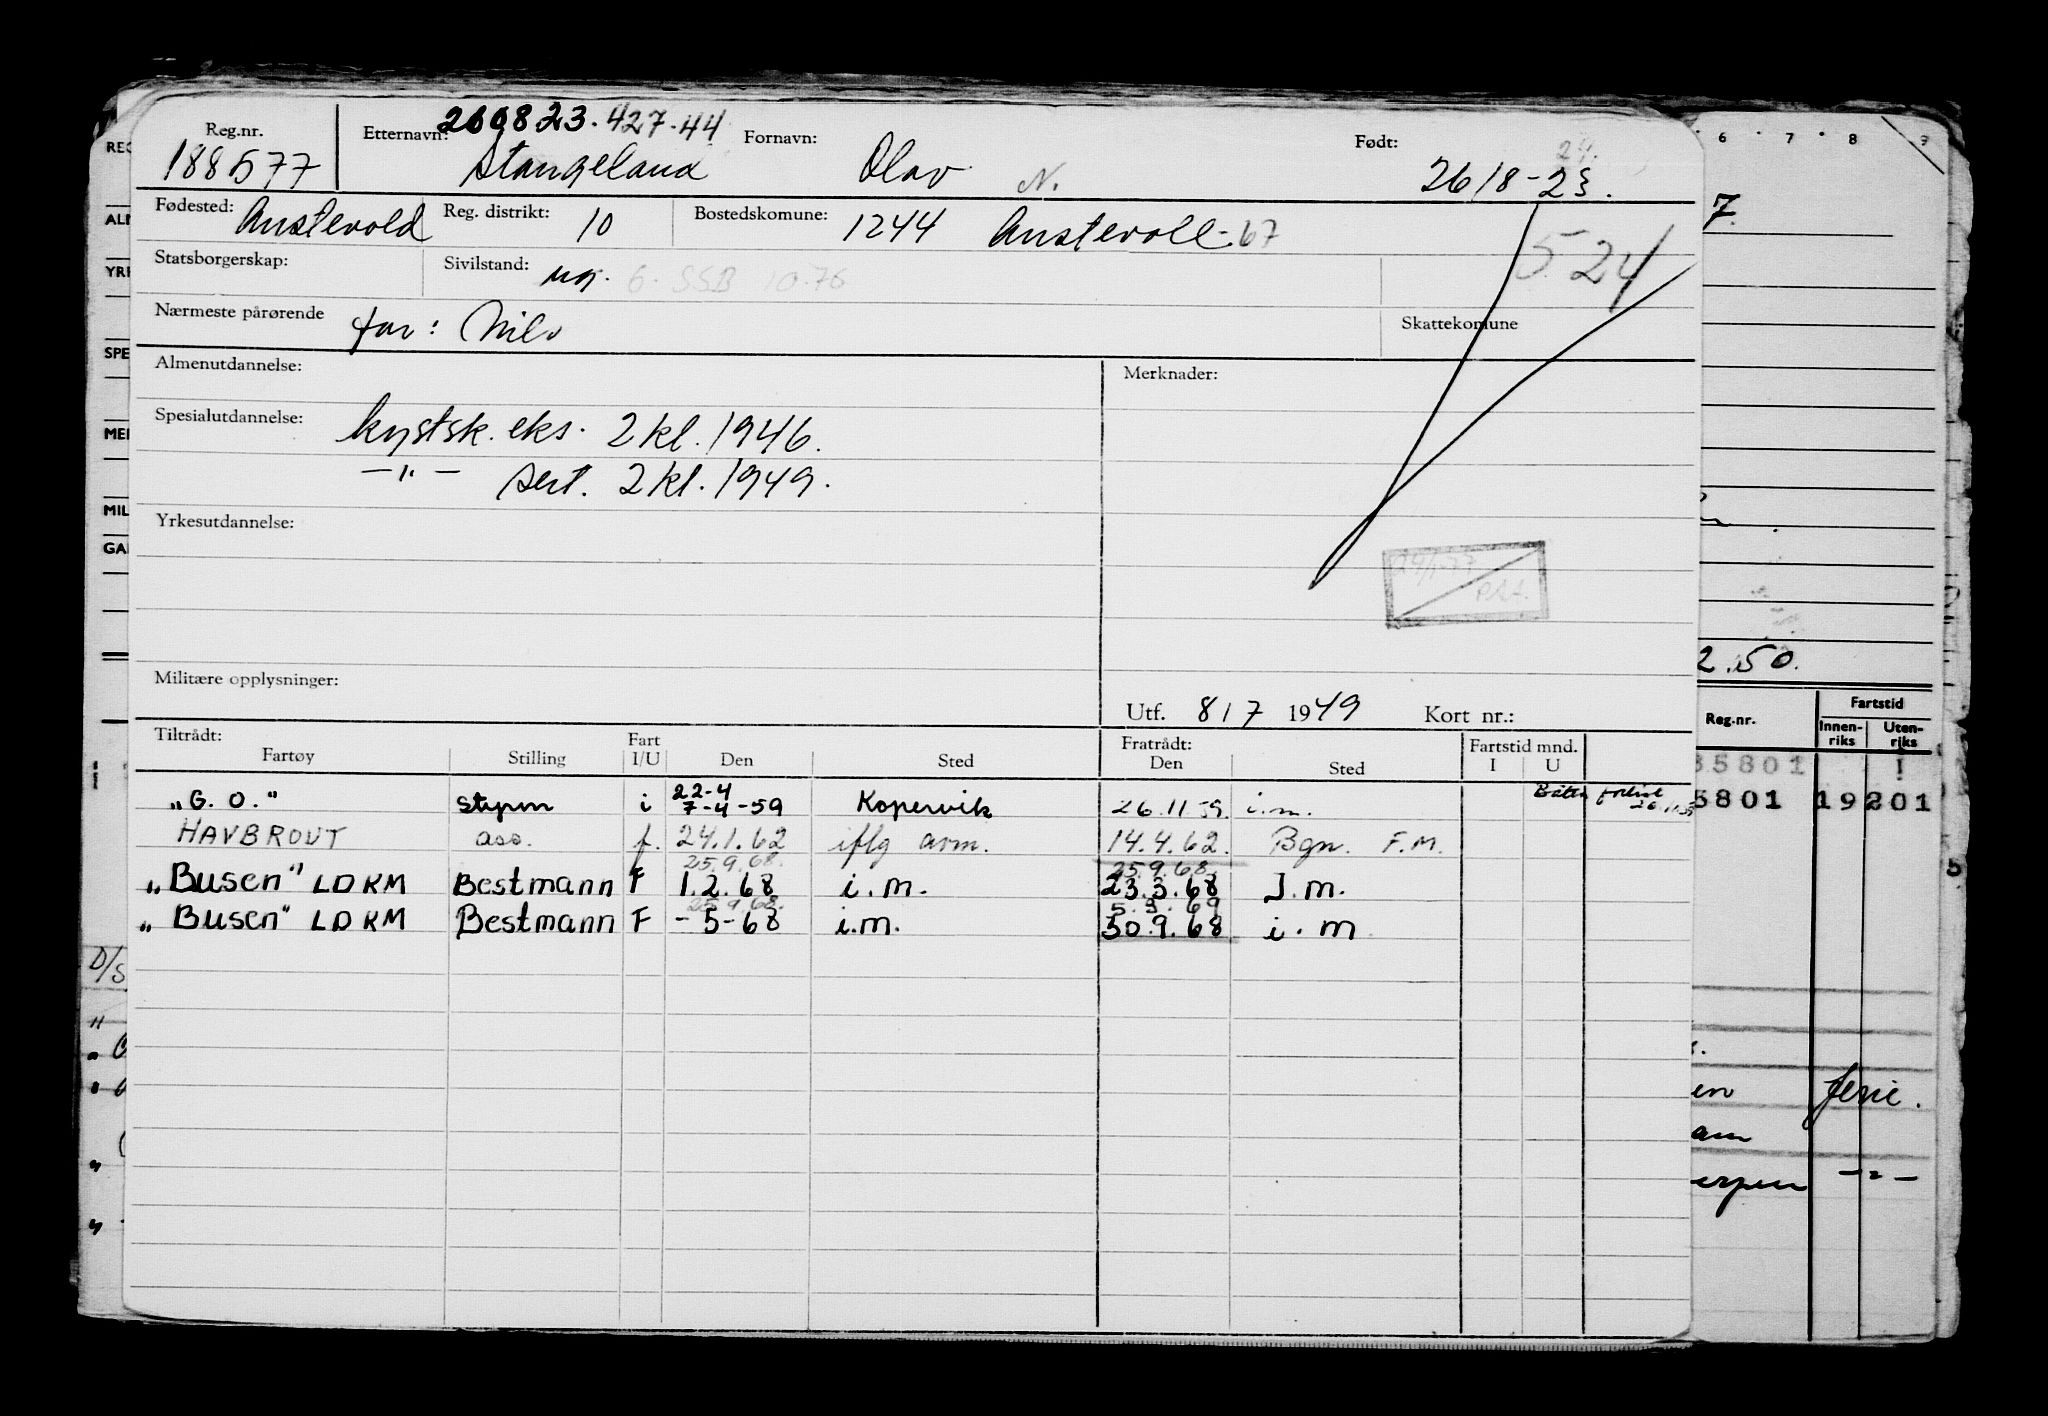 260823.427-44
Reg.nr. Etternavn: Fornavn: Født:
188577 Stangeland Olav N. 26/8-23. 24.
Fødested: Austevold Reg. distrikt: 10 Bostedskomune: 1244 Austevoll-67
Statsborgerskap: Sivilstand: ug. 6. SSB 10.76 524
Nærmeste pårørende far: Nils Skattekomune
Almenutdannelse: Merknader:
Spesialutdannelse: kystsk. eks. 2 kl. 1946.
—"— sert. 2 kl. 1949.
Yrkesutdannelse:
Militære opplysninger:
Utf. 8/7 1949 Kort nr.:
Tiltrådt: Fratrådt: Fartstid mnd.
Fartøy Stilling Fart I/U Den Sted Den Sted I U
22-4
"G. O." styrm i 7-4-59 Kopervik 26.11 59. i.m. Båten forlist
HAVBROUT ass. f. 24.1.62 iflg arm. 14.4.62. Bgn. F.M.
25.9.68. 25.9.68.
"Busen" LDKM Bestmann F 1.2.68 i.m. 23.3.68 I.m.
25.9.68. 5.3.69
"Busen" LDKM Bestmann F -5-68 i.m. 30.9.68 i.m
6 7 8 9
7.
2.50.
Reg.nr. Fartstid
Innen-riks Uten-riks
35801
5801 19 201
ferie.
REG
YRK
SPE
MIL
D/S